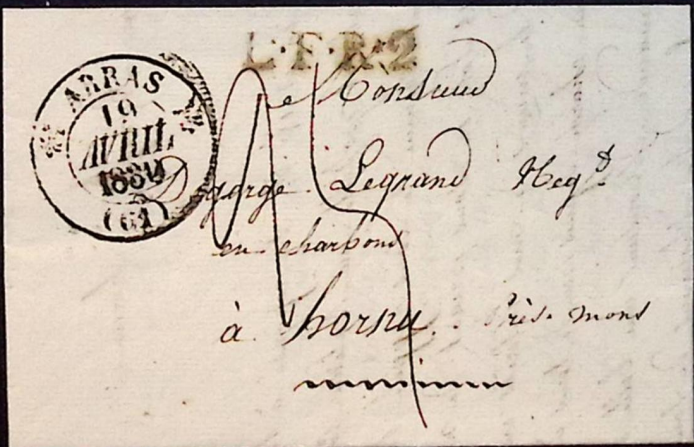 L.F.R.2
ARRAS
19
AVRIL
(61)
Monsieur
Degorge Legrand Negt
en charbons
à hornu. Près. mons